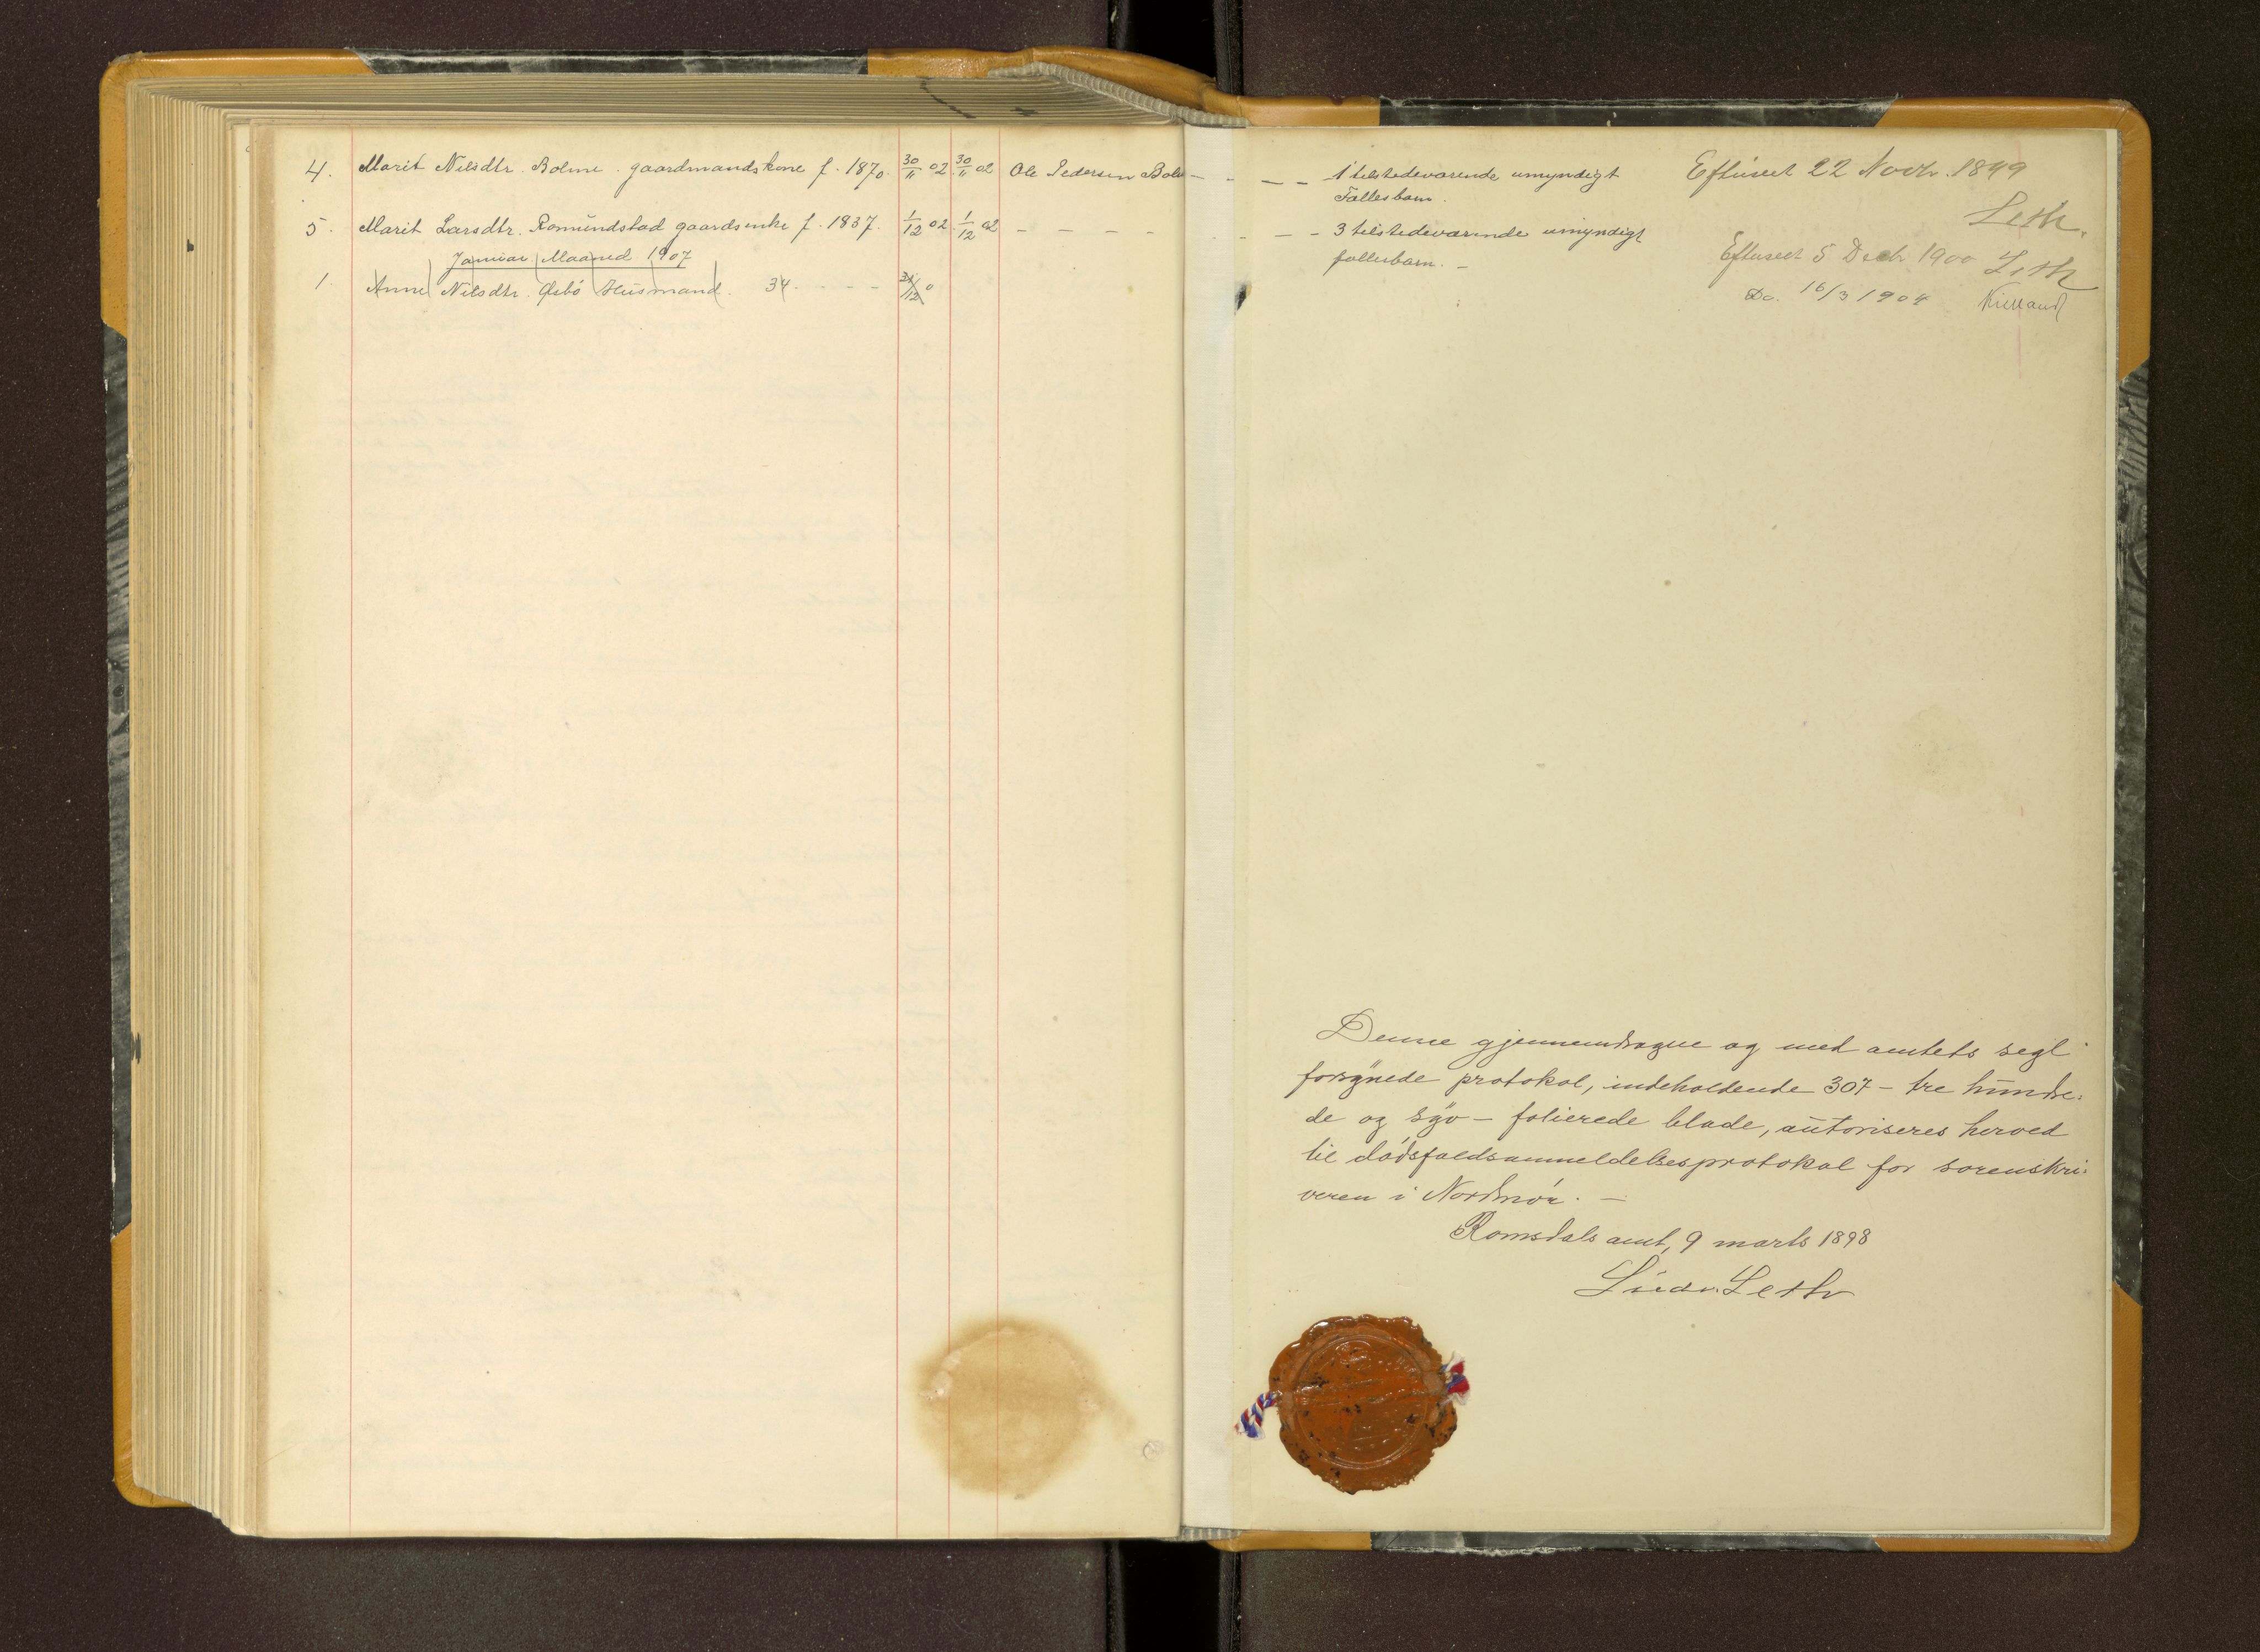 4. Marit Nilsdtr. Bolme. gaardmandskone f. 1870. 30/11 02 30/11 02 Ole Pedersen - - - - 1 tilstedeværende umyndigt
Fællesbarn.
5. Marit Larsdtr. Romundstad gaardsenke f. 1837. 1/12 02 1/12 02 - - - - - - - 3 tilstedeværende umyndigt
fællesbarn. -
Januar Maaned 1907
1. Anne Nilsdtr. Husmand. 34. - - -
Efterseet 22 Novbr. 1899
Leth.
Efterseet 5 Decbr 1900 Leth
Do. 16/3 1904 Kielland
Denne gjennemdragne og med amtets segl
forsynede protokol, indeholdende 307 - tre hundre:
de og syv - folierede blade, autoriseres herved
til dødsfaldsanmeldelsesprotokol for sorenskri:
veren i Nordmør. -
Romsdals amt, 9 marts 1898
Ludv. Leth